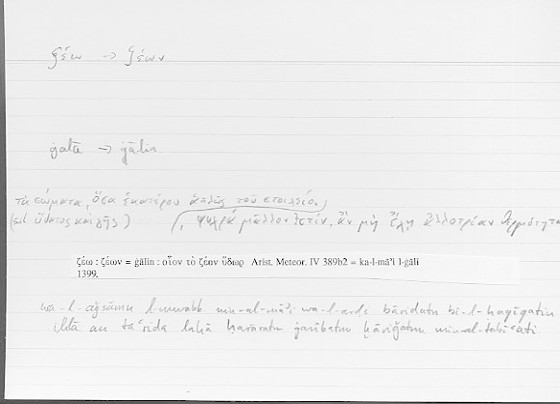 ζέω → ζέων
ġalā → ġālin
τὰ σώματα, ὅσα ἑκατέρου ἁπλῶς τοῦ στοιχείου,
(scil. ὕδατος καὶ γῆς) , ψυχρὰ μᾶλλόν ἐστιν, ἂν μὴ ἔχῃ ἀλλοτρίαν θερμότητα
ζέω : ζέων = ġālin : οἷον τὸ ζέον ὕδωρ Arist. Meteor. IV 389b2 = ka-l-mā’i l-ġālī
1399.
wa-l-aǧsāmu min-al-mā’i wa-l-arḍi bāridatun bi-l-ḥaqīqati
illā an ta‘riḍa lahā ḥarāratun ġarībatun ḫāriǧatun min-al-ṭabī‘ati